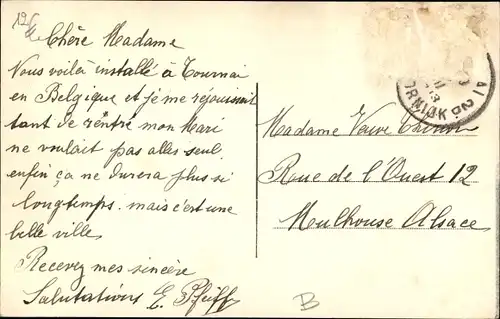 12
Chère Madame
Nous voilà installé à Tournai
en Belgique et je me réjouissait
tant de rentré mon Mari
ne voulait pas aller seul
enfin ça ne durera plus si
longtemps. mais c'est une
belle ville
Recevez mes sincère
Salutations E. Pfeiff
DORNIJK
Madame Veuve
Roue de l'Ouest 12
Mulhouse Alsace
B